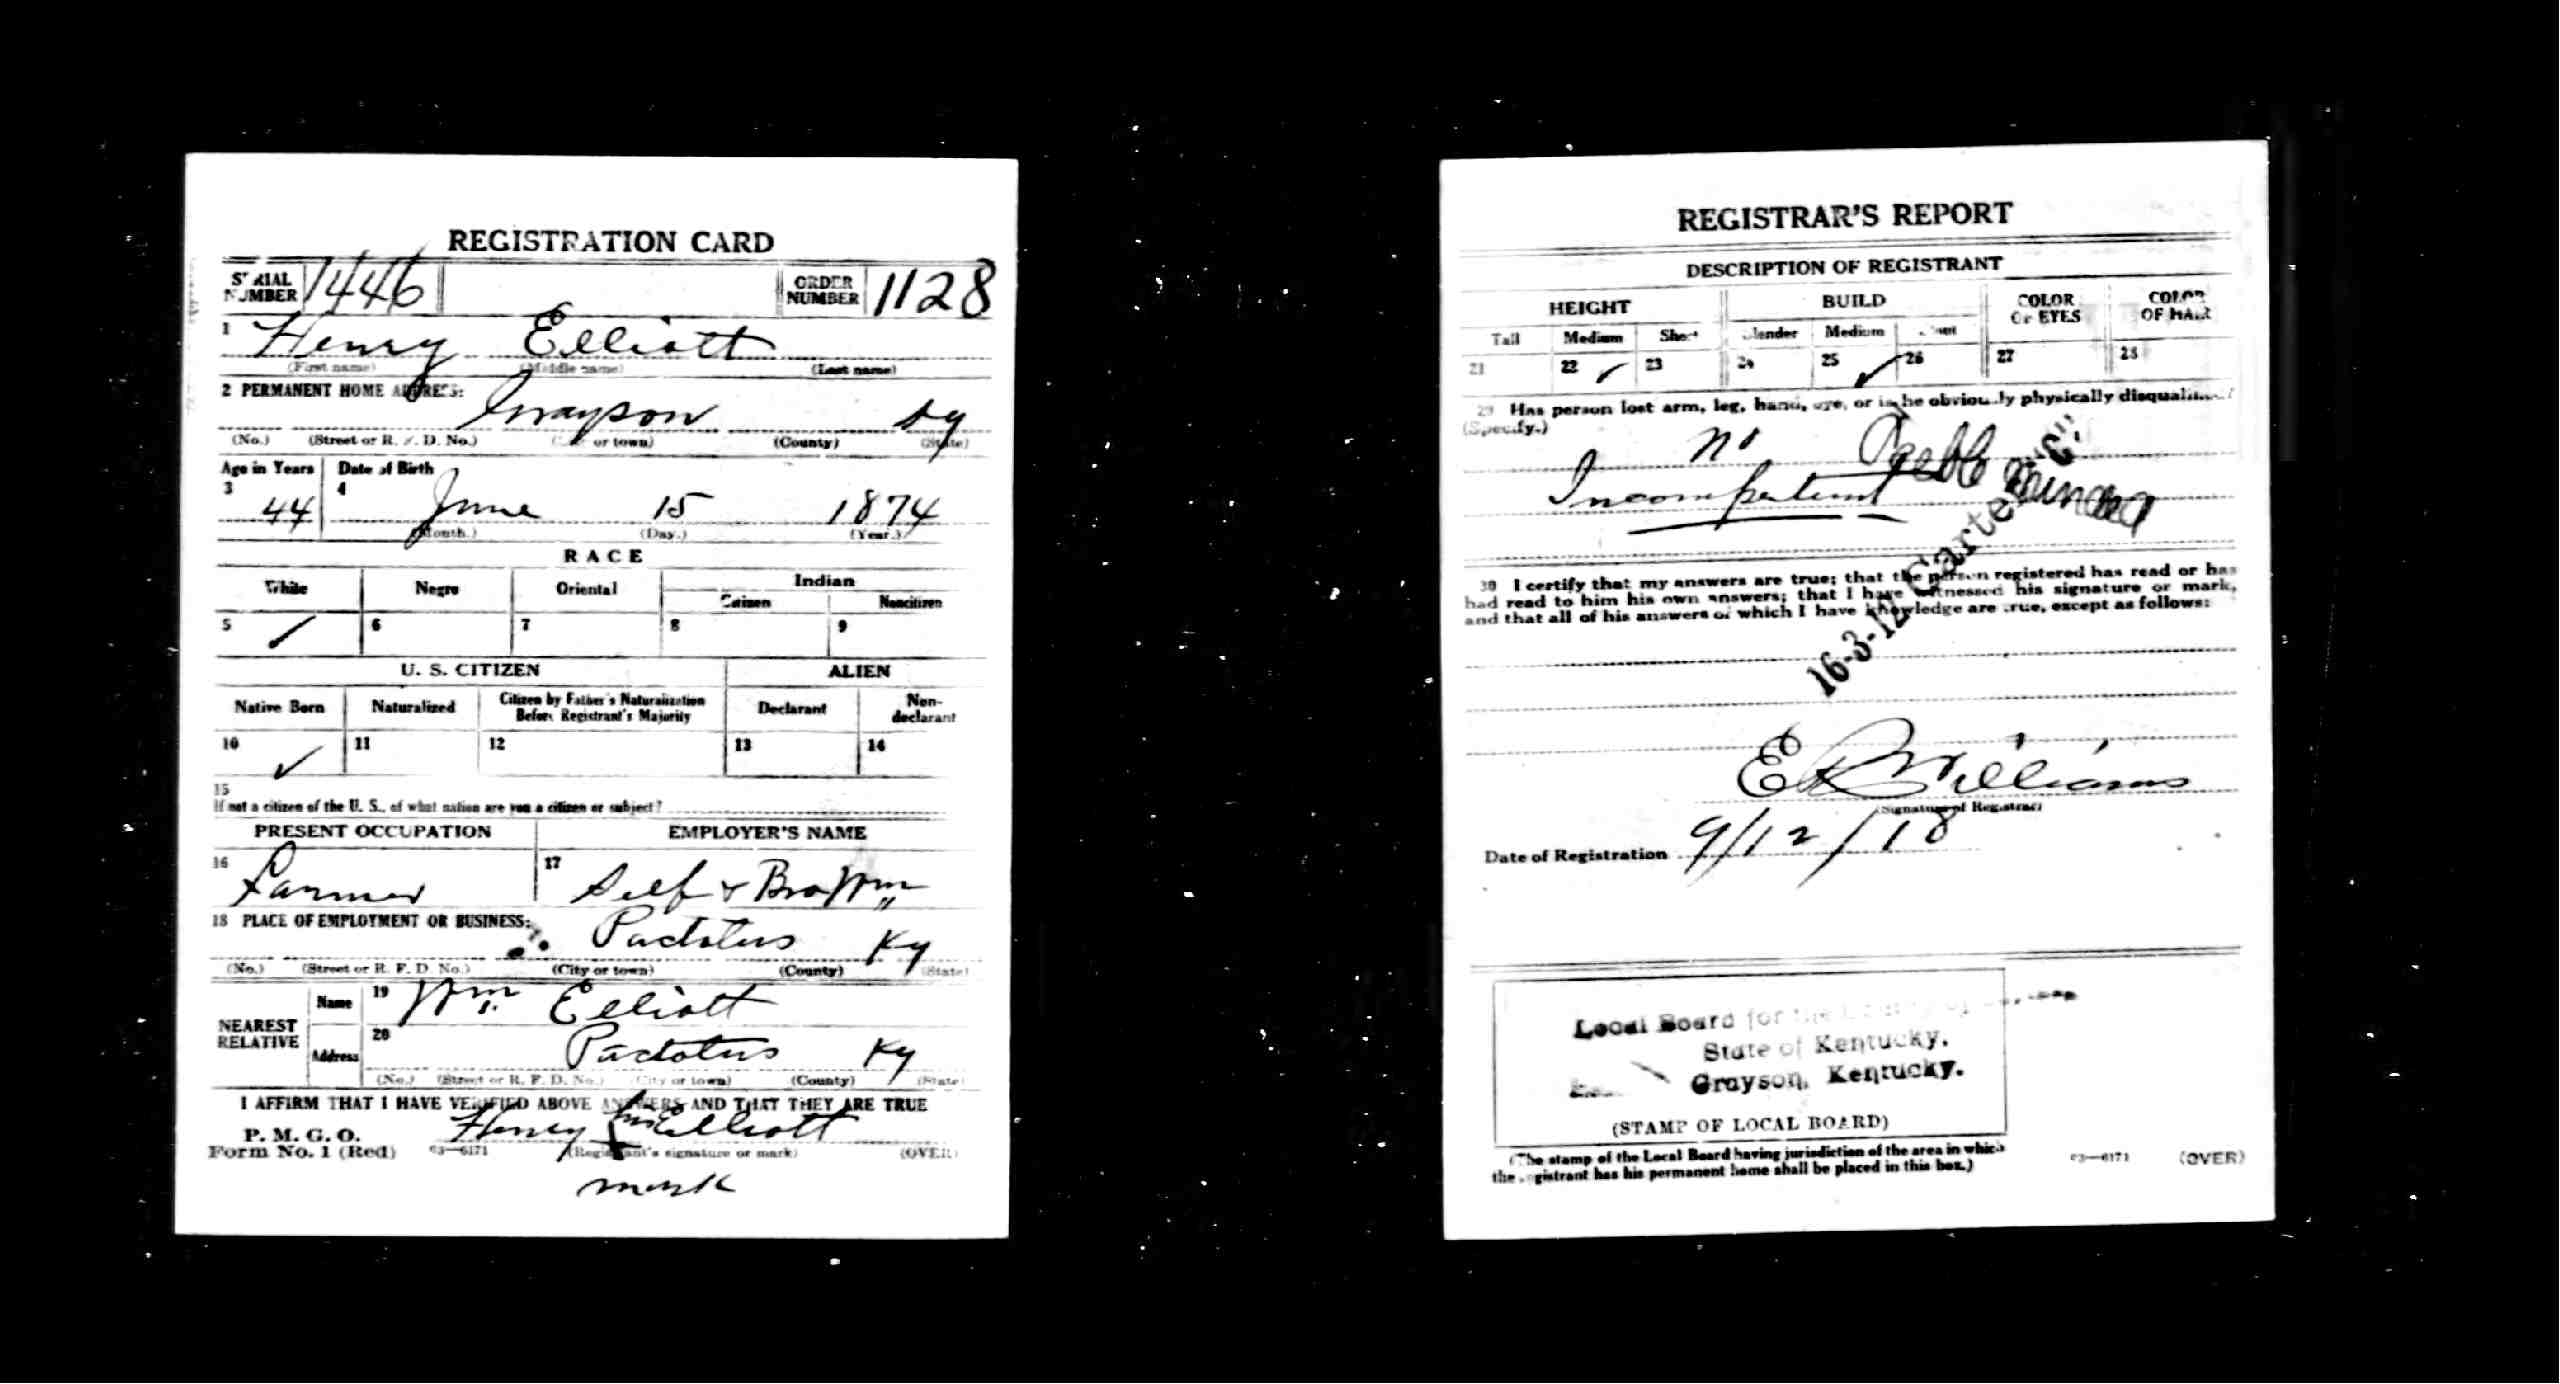 REGISTRATION CARD
SERIAL NUMBER 1446 ORDER NUMBER 1128
1 Henry Elliott
(First name) (Middle name) (Last name)
2 PERMANENT HOME ADDRESS:
Grayson Ky
(No.) (Street or R. F. D. No.) (City or town) (County) (State)
Age in Years Date of Birth
3 44 4 June 15 1874
(Month.) (Day.) (Year.)
RACE
White Negro Oriental Indian
Citizen Noncitizen
5 ✓ 6 7 8 9
U. S. CITIZEN ALIEN
Native Born Naturalized Citizen by Father's Naturalization Before Registrant's Majority Declarant Non-declarant
10 ✓ 11 12 13 14
15
If not a citizen of the U. S., of what nation are you a citizen or subject?
PRESENT OCCUPATION EMPLOYER'S NAME
16 Farmer 17 Self & Bro Wm
18 PLACE OF EMPLOYMENT OR BUSINESS:
Pactolus Ky
(No.) (Street or R. F. D. No.) (City or town) (County) (State)
NEAREST RELATIVE Name 19 Wm. Elliott
Address 20 Pactolus Ky
(No.) (Street or R. F. D. No.) (City or town) (County) (State)
I AFFIRM THAT I HAVE VERIFIED ABOVE ANSWERS AND THAT THEY ARE TRUE
P. M. G. O.
Form No. 1 (Red) 03—6171 Henry Elliott (Registrant's signature or mark) (OVER)
mark
REGISTRAR'S REPORT
DESCRIPTION OF REGISTRANT
HEIGHT BUILD COLOR OF EYES COLOR OF HAIR
Tall Medium Short Slender Medium Stout
21 22 ✓ 23 24 25 ✓ 26 27 28
29 Has person lost arm, leg, hand, eye, or is he obviously physically disqualified?
(Specify.)
no Feeble minded
Incompetent
16-3-12 Carter "C"
30 I certify that my answers are true; that the person registered has read or has
had read to him his own answers; that I have witnessed his signature or mark,
and that all of his answers of which I have knowledge are true, except as follows:
Williams
(Signature of Registrar)
Date of Registration 9/12/18
Local Board for the County of
State of Kentucky.
Grayson, Kentucky.
(STAMP OF LOCAL BOARD)
(The stamp of the Local Board having jurisdiction of the area in which
the registrant has his permanent home shall be placed in this box.)
03—6171 (OVER)